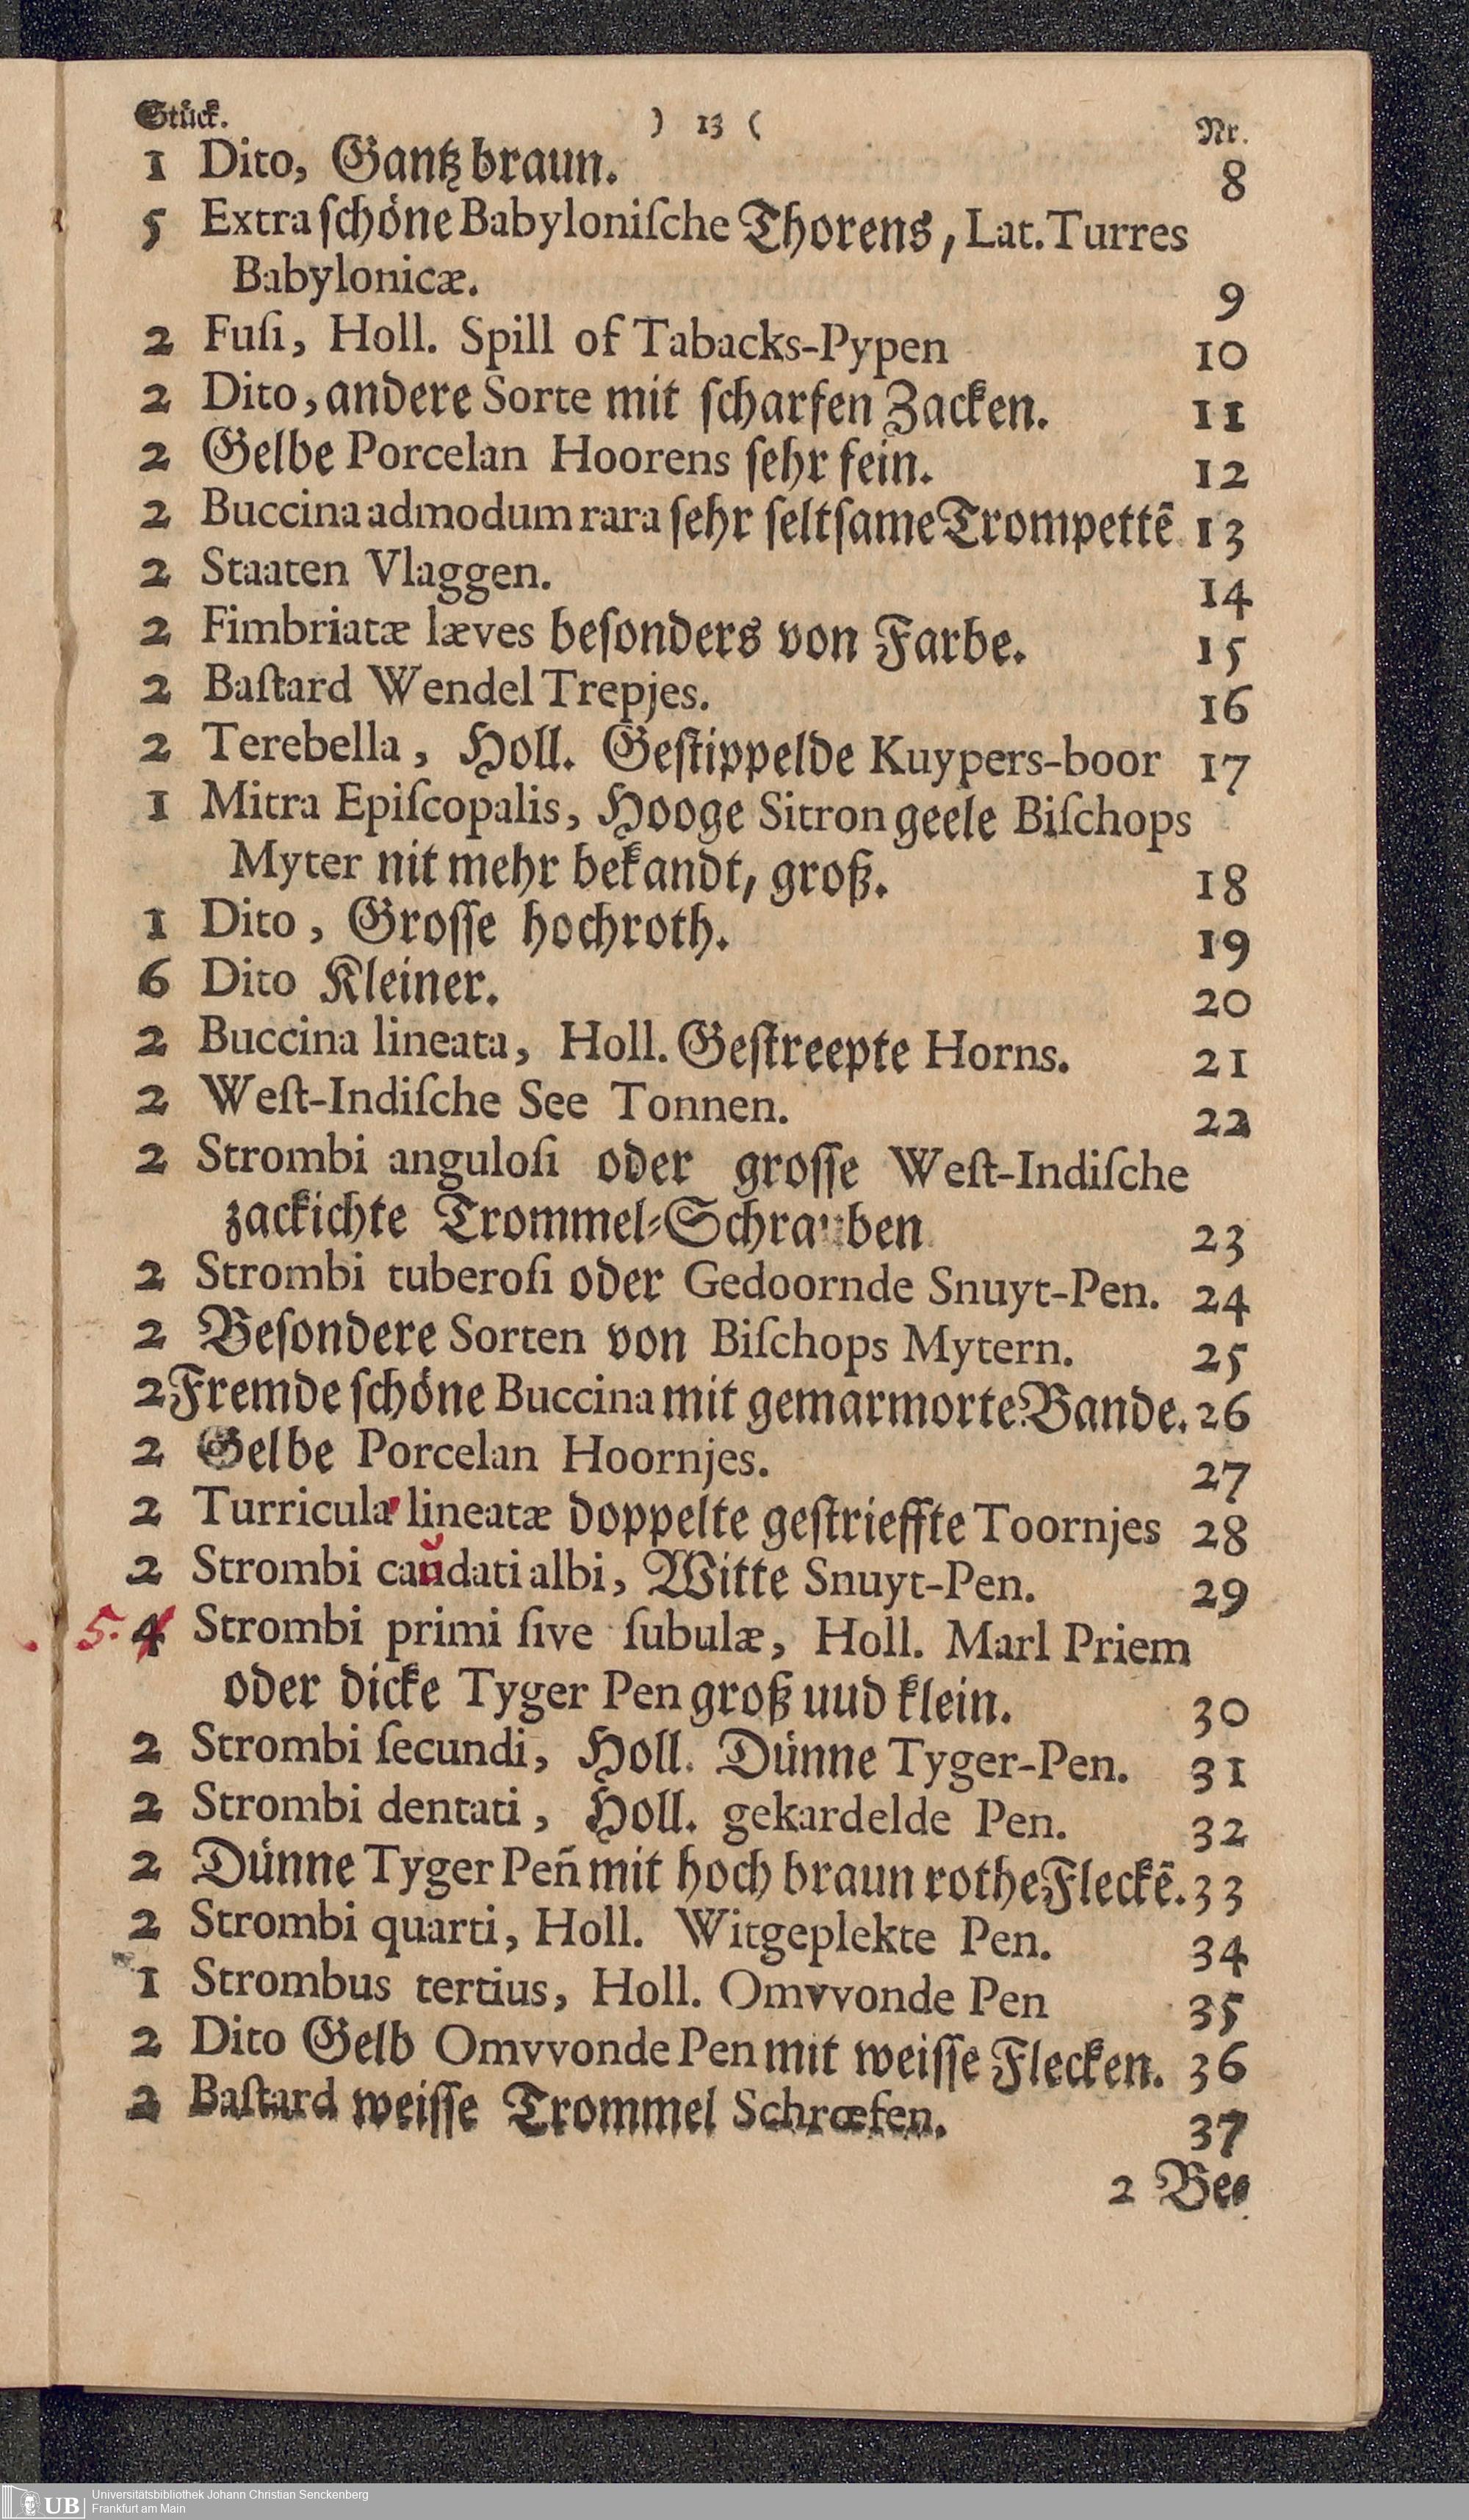 Stück. ) 13 ( Nr.
1 Dito, Gantz braun. 8
5 Extra schöne Babyloniſche Thorens, Lat. Turres
Babylonicæ. 9
2 Fuſi, Holl. Spill of Tabacks-Pypen 10
2 Dito, andere Sorte mit ſcharfen Zacken. 11
2 Gelbe Porcelan Hoorens ſehr fein. 12
2 Buccina admodum rara ſehr ſeltſame Trompettẽ 13
2 Staaten Vlaggen. 14
2 Fimbriatæ læves beſonders von Farbe. 15
2 Baſtard Wendel Trepjes. 16
2 Terebella, Holl. Geſtippelde Kuypers-boor 17
1 Mitra Epiſcopalis, Hooge Sitron geele Biſchops
Myter nit mehr bekandt, groß. 18
1 Dito, Groſſe hochroth. 19
6 Dito Kleiner. 20
2 Buccina lineata, Holl. Geſtreepte Horns. 21
2 Weſt-Indiſche See Tonnen. 22
2 Strombi anguloſi oder groſſe Weſt-Indiſche
zackichte Trommel-Schrauben 23
2 Strombi tuberoſi oder Gedoornde Snuyt-Pen. 24
2 Beſondere Sorten von Biſchops Mytern. 25
2 Fremde ſchöne Buccina mit gemarmorte Bande. 26
2 Gelbe Porcelan Hoornjes. 27
2 Turricula lineatæ doppelte geſtrieffte Toornjes 28
2 Strombi caŭdati albi, Witte Snuyt-Pen. 29
5. 4 Strombi primi ſive ſubulæ, Holl. Marl Priem
oder dicke Tyger Pen groß uud klein. 30
2 Strombi ſecundi, Holl. Dünne Tyger-Pen. 31
2 Strombi dentati, Holl. gekardelde Pen. 32
2 Dünne Tyger Peñ mit hoch braun rothe Fleckẽ. 33
2 Strombi quarti, Holl. Witgeplekte Pen. 34
1 Strombus tertius, Holl. Omvvonde Pen 35
2 Dito Gelb Omvvonde Pen mit weiſſe Flecken. 36
2 Baſtard weiſſe Trommel Schrœfen. 37
2 Be⸗
UB Universitätsbibliothek Johann Christian Senckenberg
Frankfurt am Main